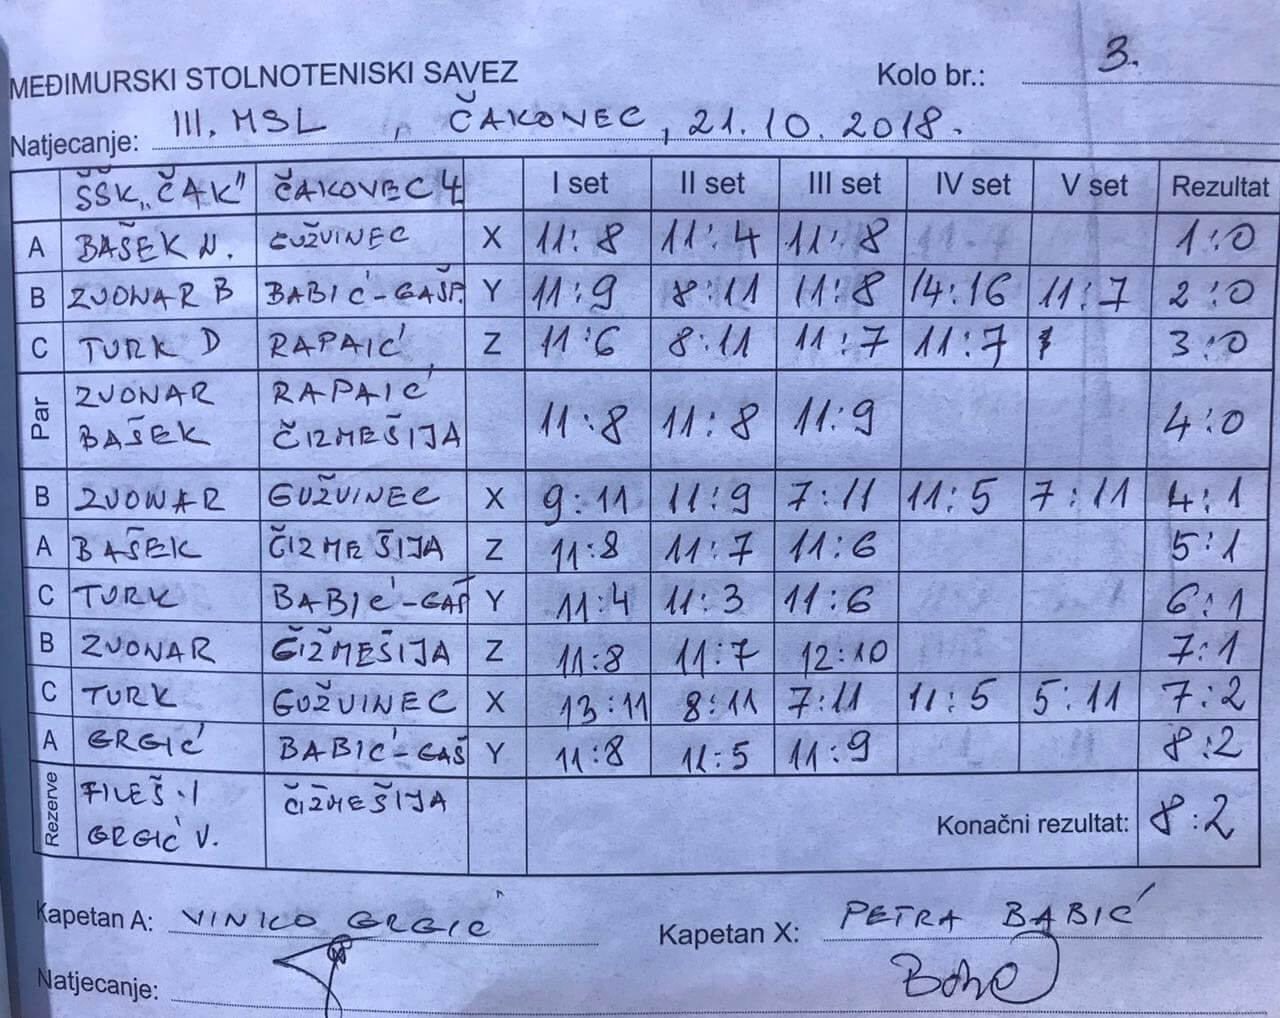 MEĐIMURSKI STOLNOTENISKI SAVEZ Kolo br.: 3.
Natjecanje: III. MSL, ČAKOVEC, 21.10.2018.
ŠŠK „ČAK" ČAKOVEC 4 I set II set III set IV set V set Rezultat
A BAŠEK N. GUŽVINEC X 11:8 11:4 11:8 1:0
B ZVONAR B BABIĆ-GAŠP. Y 11:9 8:11 11:8 14:16 11:7 2:0
C TURK D RAPAIĆ Z 11:6 8:11 11:7 11:7 3:0
Par ZVONAR RAPAIĆ
BAŠEK ČIZMEŠIJA 11:8 11:8 11:9 4:0
B ZVONAR GUŽVINEC X 9:11 11:9 7:11 11:5 7:11 4:1
A BAŠEK ČIZMEŠIJA Z 11:8 11:7 11:6 5:1
C TURK BABIĆ-GAŠ Y 11:4 11:3 11:6 6:1
B ZVONAR ČIŽMEŠIJA Z 11:8 11:7 12:10 7:1
C TURK GUŽVINEC X 13:11 8:11 7:11 11:5 5:11 7:2
A GRGIĆ BABIĆ-GAŠ Y 11:8 11:5 11:9 8:2
Rezerve FILEŠ.I ČIZMEŠIJA
GRGIĆ V. Konačni rezultat: 8:2
Kapetan A: VINKO GRGIĆ Kapetan X: PETRA BABIĆ
Natjecanje: